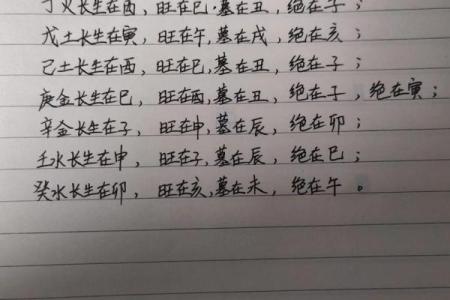 丁火长生在酉，旺在巳.墓在丑，绝在子；
尤土长生在寅，旺在午，墓在戌，绝在亥；
己土长生在酉，旺在巳，墓在丑，绝在子；
庚金长生在巳，旺在酉，墓在丑，绝在子，绝在寅；
辛金长生在子，旺在申，墓在辰，绝在卯；
壬火长生在申，旺在子，墓在辰，绝在巳；
癸水长生在卯，旺在亥，墓在未，绝在午。